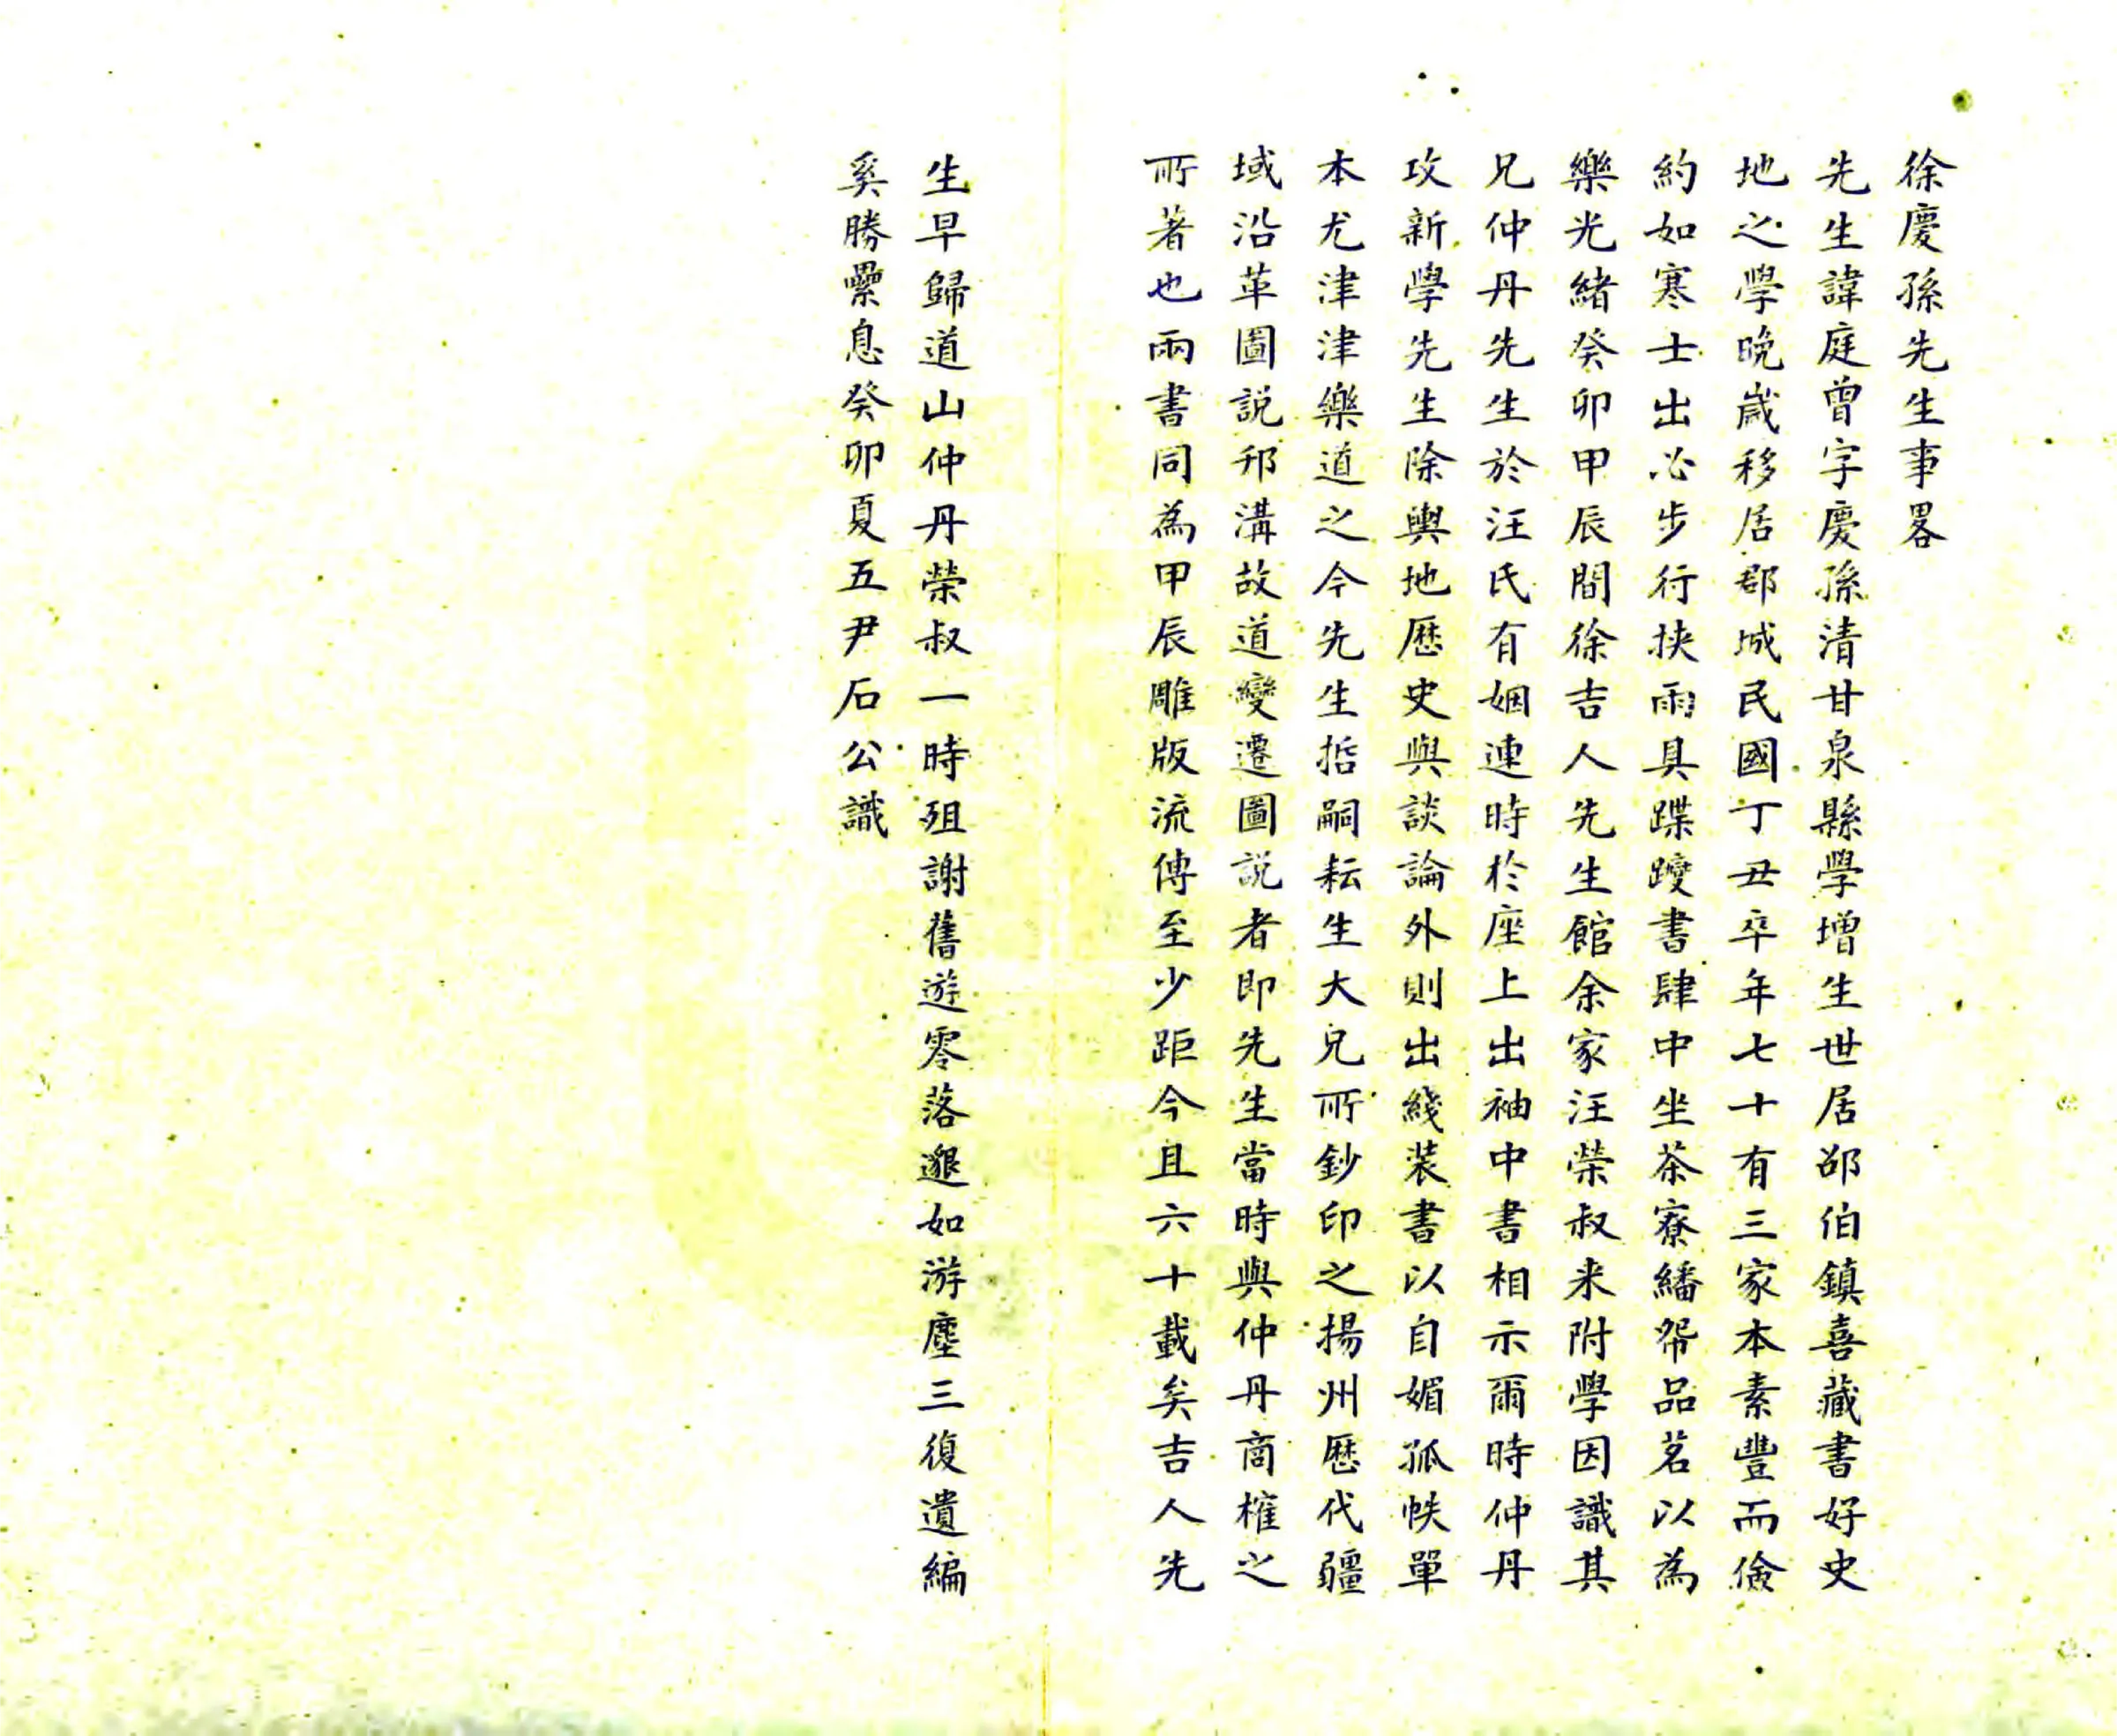 徐慶孫先生事畧
先生諱庭曾字慶孫清甘泉縣學增生世居邵伯鎮喜藏書好史
地之學晚歲移居郡城民國丁丑卒年七十有三家本素豐而儉
約如寒士出必步行挾雨具蹀躞書肆中坐茶寮繙帋品茗以為
樂光緒癸卯甲辰間徐吉人先生館余家汪榮叔来附學因識其
兄仲丹先生於汪氏有姻連時於座上出袖中書相示爾時仲丹
攻新學先生除輿地歷史與談論外則出綫装書以自媚孤帙單
本尤津津樂道之今先生哲嗣耘生大兄所鈔印之揚州歷代疆
域沿革圖説邗溝故道變遷圖説者即先生當時與仲丹商榷之
所著也兩書同為甲辰雕版流傳至少距今且六十載矣吉人先
生早歸道山仲丹榮叔一時殂謝舊遊零落邈如游塵三復遺編
奚勝纍息癸卯夏五尹石公識